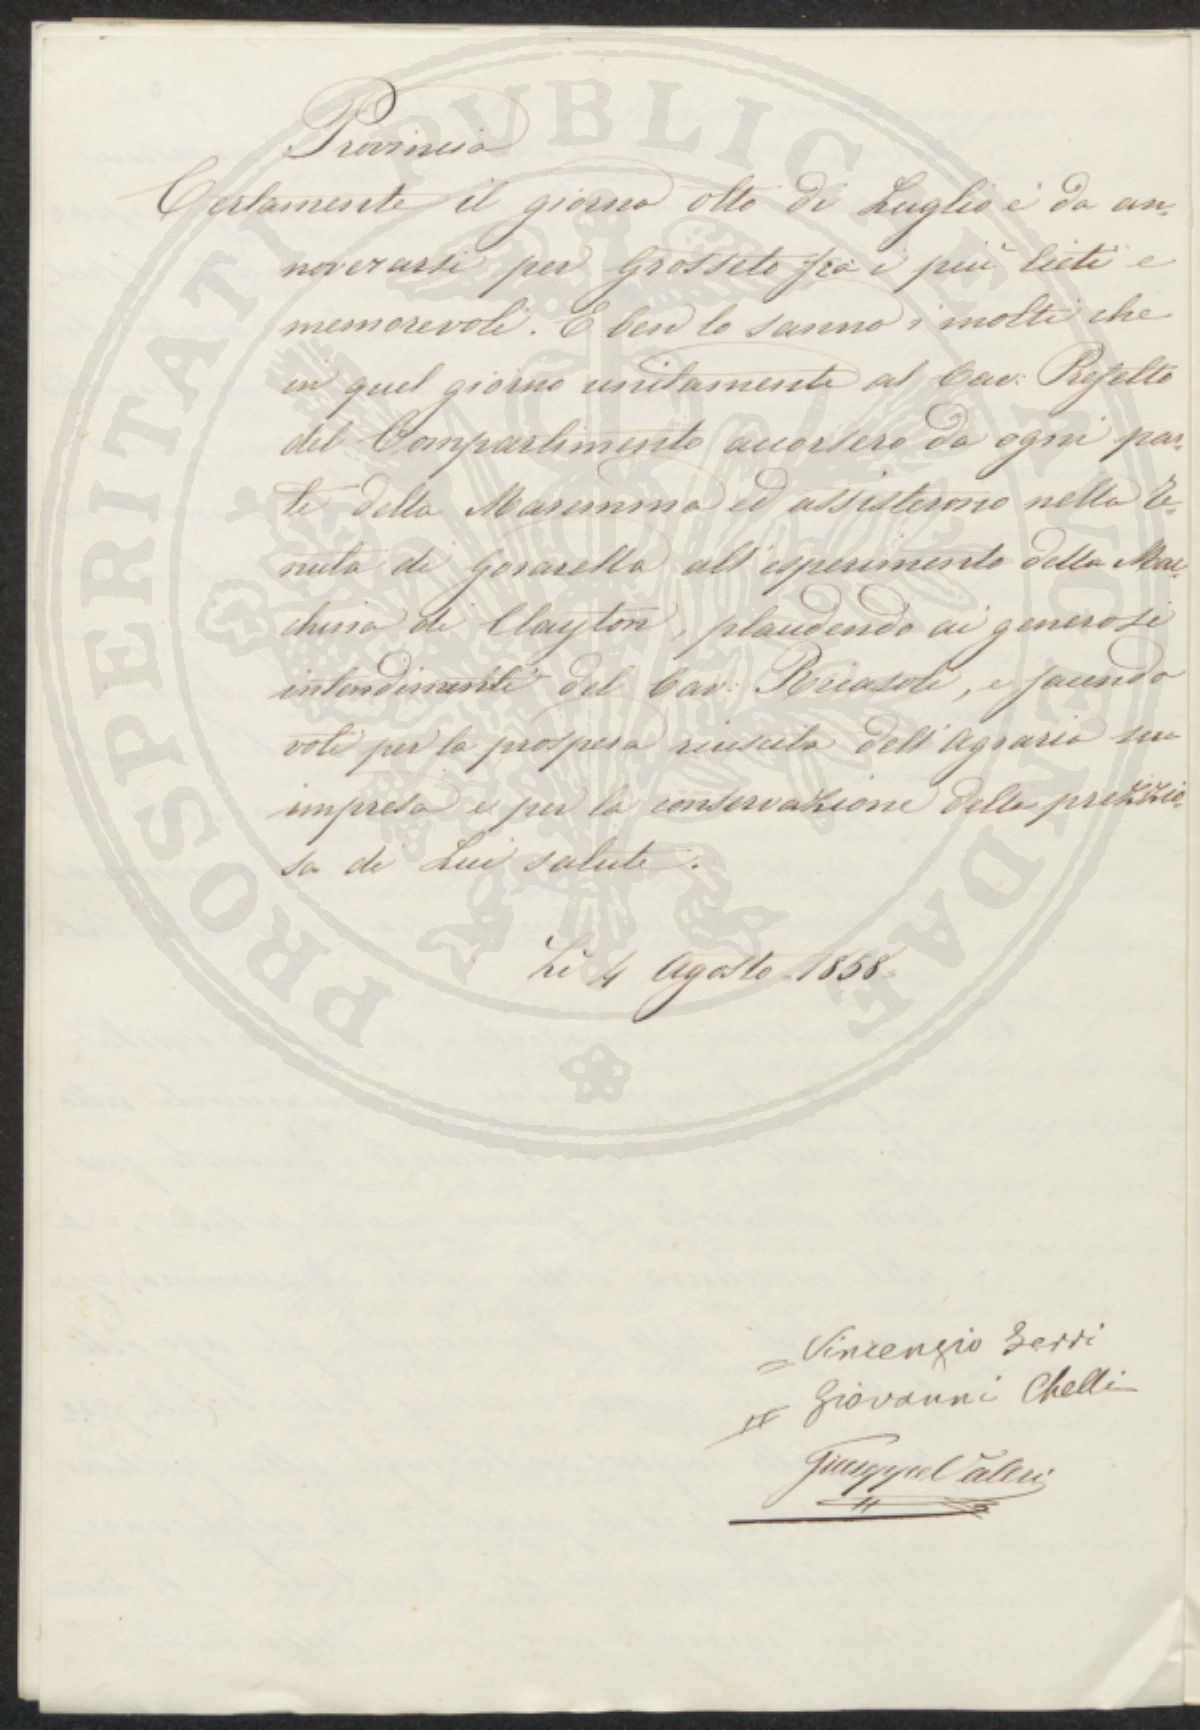 Provincia
Certamente il giorno otto di Luglio è da an-
noverarsi per Grosseto fra i più lieti e
memorevoli. E ben lo sanno i molti che
in quel giorno unitamente al Cav: Prefetto
del Compartimento accorsero da ogni par-
te della Maremma ed assisterono nella Te-
nuta di Gorarella all'esperimento della Mac-
china di Clayton, plaudendo ai generosi
intendimenti del Cav: Ricasoli, e facendo
voti per la prospera riuscita dell'Agraria sua
impresa e per la conservazione della prezio-
sa di Lui salute.
Lì 4 Agosto 1858.
= Vincenzio Serri
= Giovanni Chelli
Giuseppe Valeri
PROSPERITATI PVBLICAE AVGENDAE